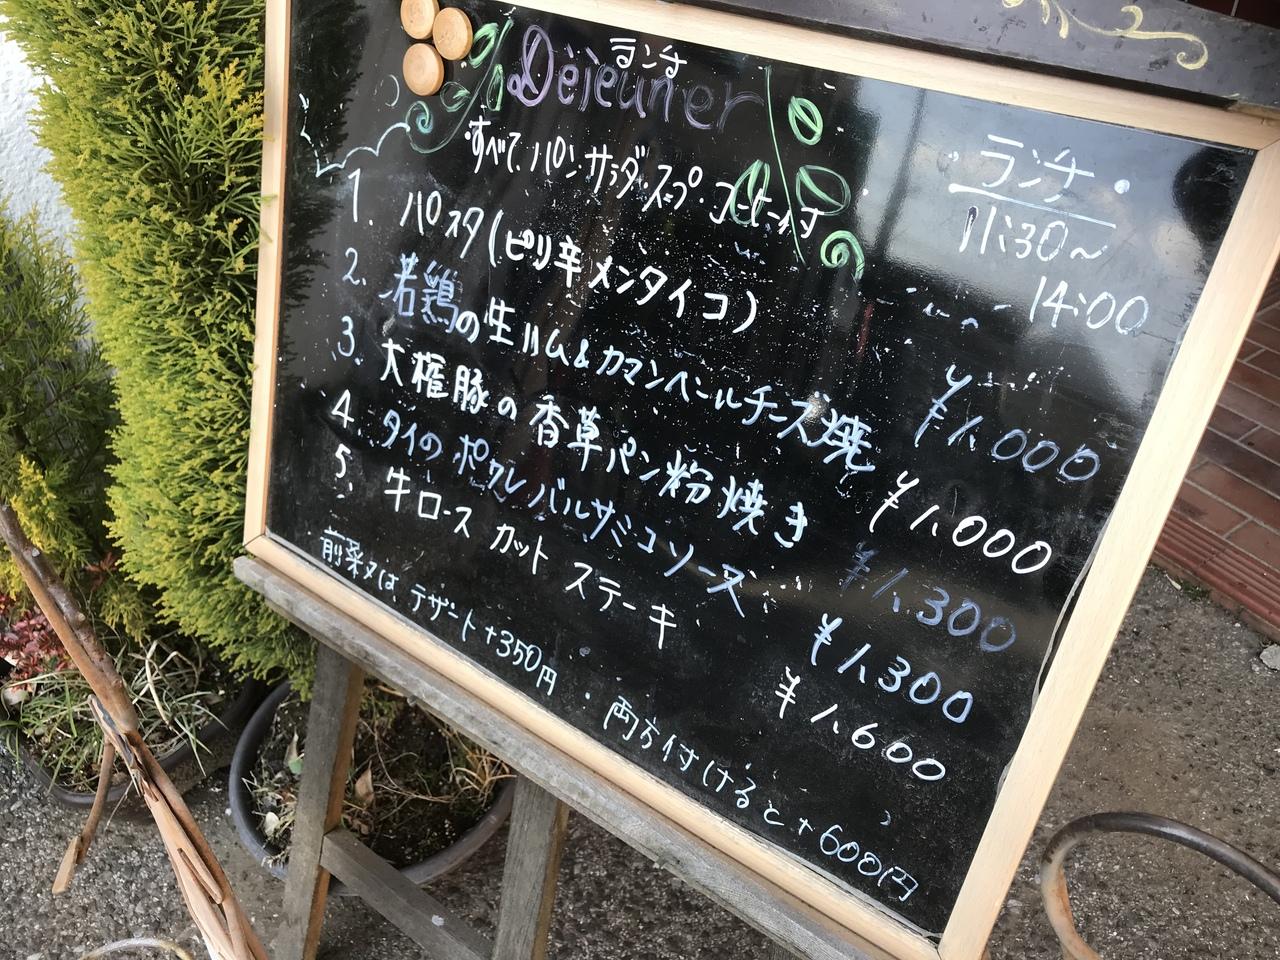 ランチ
Déjeuner
すべて、パン・サラダ・スープ・コーヒー付
ランチ
11:30~
14:00
1. パスタ(ピリ辛メンタイコ) ¥1,000
2. 若鶏の生ハム&カマンベールチーズ焼 ¥1,000
3. 大権豚の香草パン粉焼き ¥1,300
4. タイのポワレ バルサミコソース ¥1,300
5. 牛ロース カットステーキ ¥1,600
前菜又は デザート+350円・両方付けると+600円